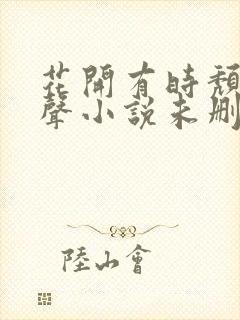 花開有時頹
聲小說未刪
陸山會